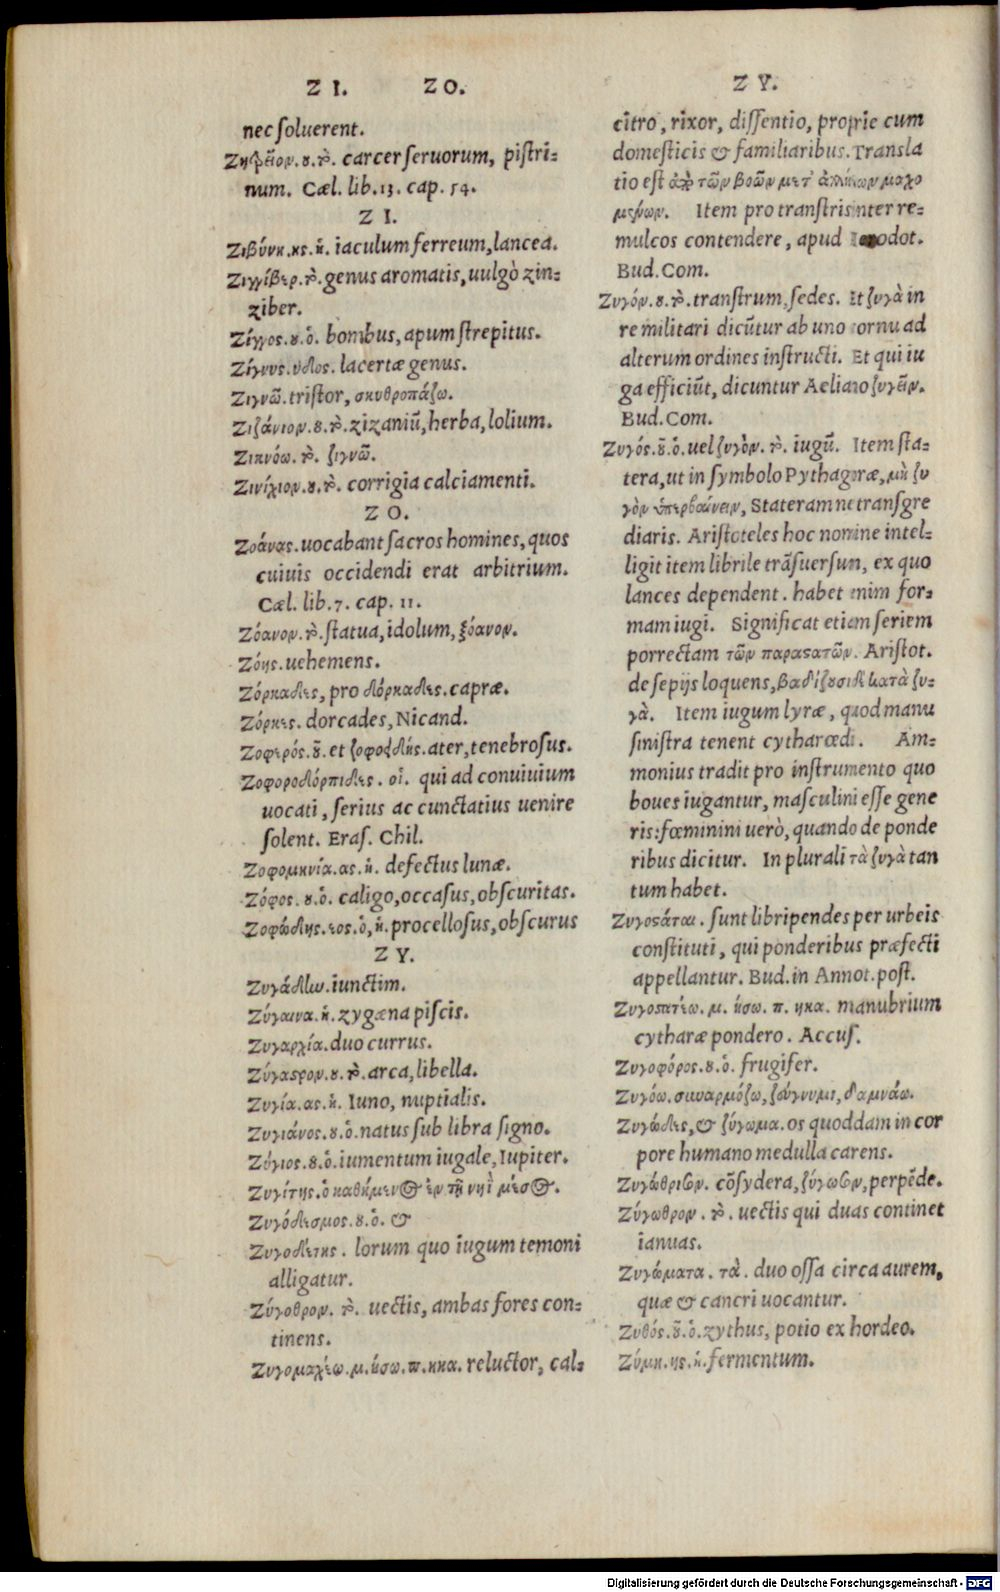 Z I.   Z O.
nec soluerent.
Ζητρεῖον. ου. τὸ. carcer seruorum, pistri=
num. Cæl. lib. 13. cap. 54.
Z I.
Ζιβύνη. ης. ἡ. iaculum ferreum, lancea.
Ζιγγίβερ. τὸ. genus aromatis, uulgò zin=
ziber.
Ζίγγος. ου. ὁ. bombus, apum strepitus.
Ζίγνυς. υδος. lacertæ genus.
Ζιγνῶ. tristor, σκυθροπάζω.
Ζιζάνιον. ου. τὸ. zizaniũ, herba, lolium.
Ζικνόω. τὸ. ζιγνῶ.
Ζινίχιον. ου. τὸ. corrigia calciamenti.
Z O.
Ζοάνας. uocabant sacros homines, quos
cuiuis occidendi erat arbitrium.
Cæl. lib. 7. cap. 11.
Ζόανον. τὸ. statua, idolum, ξόανον.
Ζόης. uehemens.
Ζόρκαδες, pro δόρκαδες. capræ.
Ζόρκες. dorcades, Nicand.
Ζοφερός. οῦ. et ζοφοειδής. ater, tenebrosus.
Ζοφοροδόρπιδες. οἱ. qui ad conuiuium
uocati, serius ac cunctatius uenire
solent. Eras. Chil.
Ζοφομηνία. ας. ἡ. defectus lunæ.
Ζόφος. ου. ὁ. caligo, occasus, obscuritas.
Ζοφώδης. εος. ὁ, ἡ. procellosus, obscurus
Z Y.
Ζυγάδην. iunctim.
Ζύγαινα. ἡ. zygæna piscis.
Ζυγαρχία. duo currus.
Ζύγαστρον. ου. τὸ. arca, libella.
Ζυγία. ας. ἡ. Iuno, nuptialis.
Ζυγιάνος. ου. ὁ. natus sub libra signo.
Ζύγιος. ου. ὁ. iumentum iugale, Iupiter.
Ζυγίτης. ὁ καθήμενος ἐν τῇ νηῒ μέσος.
Ζυγόδεσμος. ου. ὁ. &
Ζυγοδέτης. lorum quo iugum temoni
alligatur.
Ζύγοθρον. τὸ. uectis, ambas fores con=
tinens.
Ζυγομαχέω. μ. ήσω. π. ηκα. reluctor, cal=
Z Y.
citro, rixor, dissentio, proprie cum
domesticis & familiaribus. Transla
tio est ἀπὸ τῶν βοῶν μετ' ἀλλήλων μαχο
μένων. Item pro transtris inter re=
mulcos contendere, apud odot.
Bud. Com.
Ζυγόν. οῦ. τὸ. transtrum, sedes. Et ζυγὰ in
re militari dicũtur ab uno cornu ad
alterum ordines instructi. Et qui iu
ga efficiũt, dicuntur Aeliano ζυγεῖν.
Bud. Com.
Ζυγός. οῦ. ὁ. uel ζυγὸν. τὸ. iugũ. Item sta=
tera, ut in symbolo Pythagoræ, μὴ ζυ
γὸν ὑπερβαίνειν, Stateram ne transgre
diaris. Aristoteles hoc nomine intel=
ligit item librile trãsuersum, ex quo
lances dependent. habet enim for=
mam iugi. Significat etiam seriem
porrectam τῶν παραστατῶν. Aristot.
de sepijs loquens, βαδίζουσι δὲ κατὰ ζυ=
γὰ. Item iugum lyræ, quod manu
sinistra tenent cytharœdi. Am=
monius tradit pro instrumento quo
boues iugantur, masculini esse gene
ris: fœminini uerò, quando de ponde
ribus dicitur. In plurali τὰ ζυγὰ tan
tum habet.
Ζυγοστάται. sunt libripendes per urbeis
constituti, qui ponderibus præfecti
appellantur. Bud. in Annot. post.
Ζυγοστατέω. μ. ήσω. π. ηκα. manubrium
cytharæ pondero. Accus.
Ζυγοφόρος. ου. ὁ. frugifer.
Ζυγόω. συναρμόζω, ζεύγνυμι, δαμνάω.
Ζυγώδες, & ζύγωμα. os quoddam in cor
pore humano medulla carens.
Ζυγώθρισον. cõsydera, ζύγωσον, perpẽde.
Ζύγωθρον. τὸ. uectis qui duas continet
ianuas.
Ζυγώματα. τὰ. duo ossa circa aurem,
quæ & cancri uocantur.
Ζυθός. οῦ. ὁ. zythus, potio ex hordeo.
Ζύμη. ης. ἡ. fermentum.
Digitalisierung gefördert durch die Deutsche Forschungsgemeinschaft - DFG